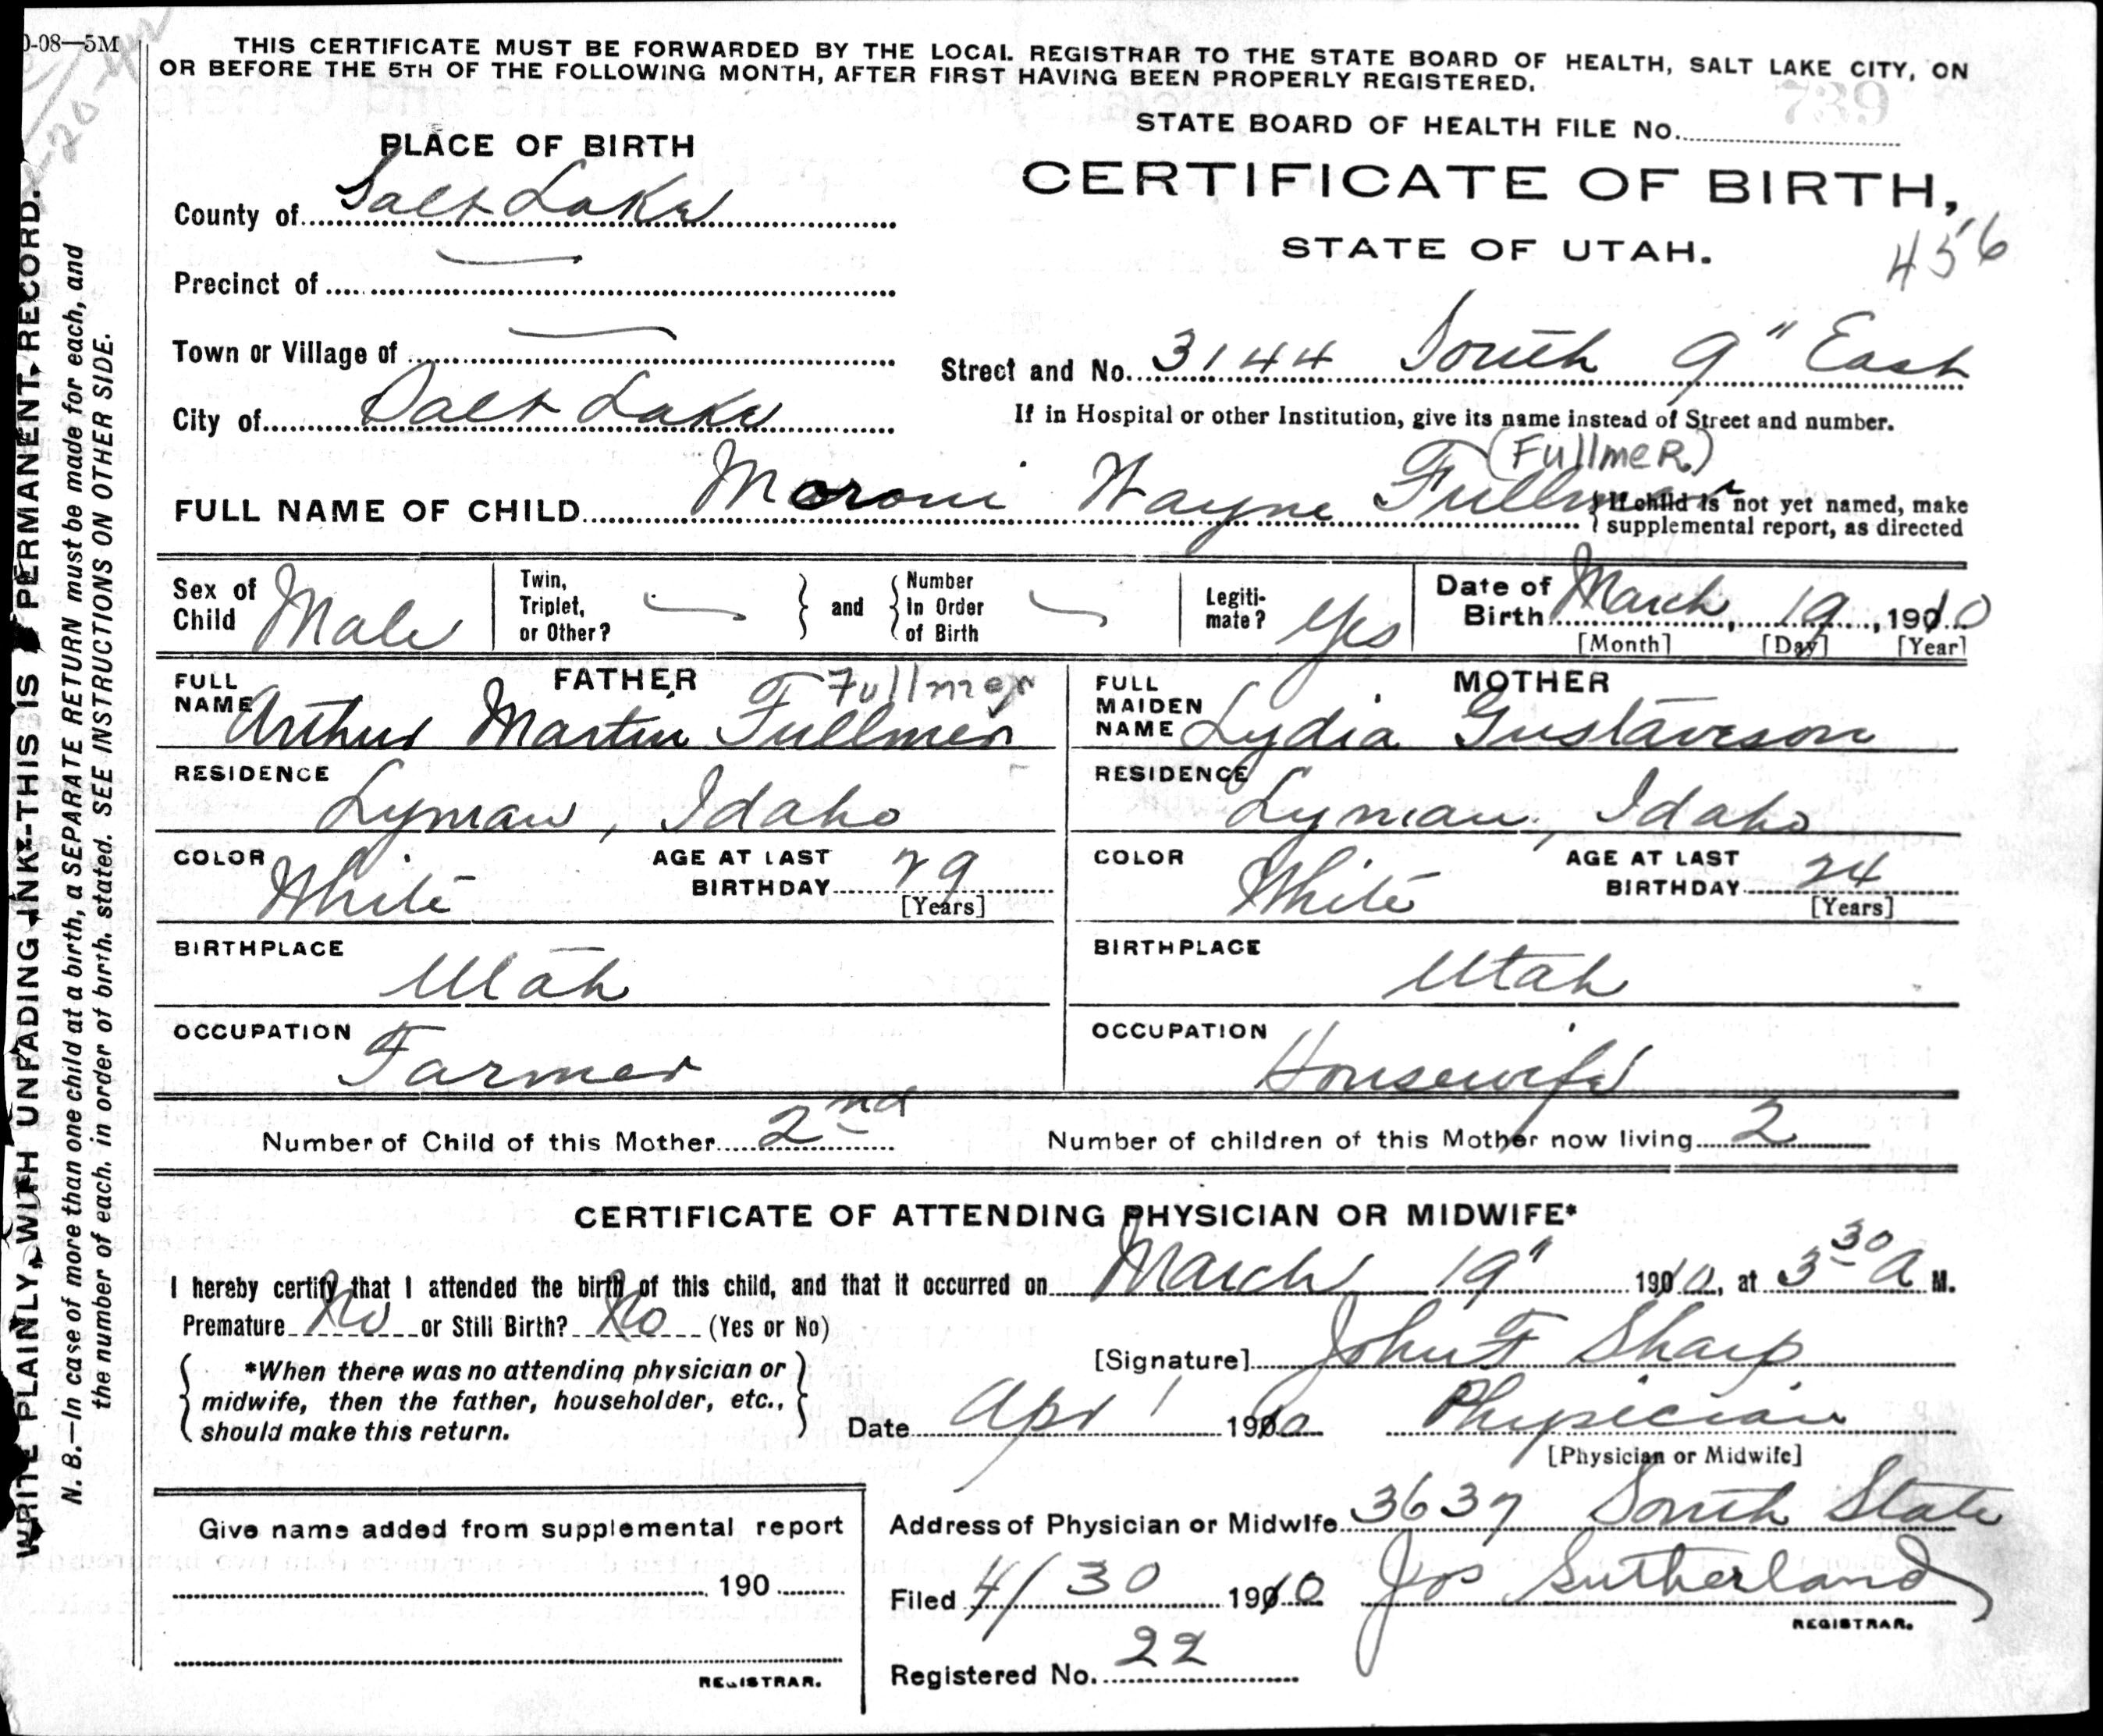 0-08—5M
THIS CERTIFICATE MUST BE FORWARDED BY THE LOCAL REGISTRAR TO THE STATE BOARD OF HEALTH, SALT LAKE CITY, ON
OR BEFORE THE 5TH OF THE FOLLOWING MONTH, AFTER FIRST HAVING BEEN PROPERLY REGISTERED.
739
STATE BOARD OF HEALTH FILE No.
PLACE OF BIRTH
CERTIFICATE OF BIRTH,
STATE OF UTAH.
456
County of Salt Lake
Precinct of —
Town or Village of —
Street and No. 3144 South 9" East
City of Salt Lake
If in Hospital or other Institution, give its name instead of Street and number.
(FullmeR)
FULL NAME OF CHILD Moroni Wayne Fullmer
{ If child is not yet named, make
supplemental report, as directed
Sex of Child Male
Twin, Triplet, or Other? — } and { Number In Order of Birth —
Legitimate? Yes
Date of Birth March, 19, 1910
[Month] [Day] [Year]
FATHER
Fullmer
FULL NAME Arthur Martin Fullmer
RESIDENCE Lyman, Idaho
COLOR White
AGE AT LAST BIRTHDAY 29
[Years]
BIRTHPLACE Utah
OCCUPATION Farmer
MOTHER
FULL MAIDEN NAME Lydia Gustaveson
RESIDENCE Lyman, Idaho
COLOR White
AGE AT LAST BIRTHDAY 24
[Years]
BIRTHPLACE Utah
OCCUPATION Housewife
Number of Child of this Mother 2nd
Number of children of this Mother now living 2
CERTIFICATE OF ATTENDING PHYSICIAN OR MIDWIFE*
I hereby certify that I attended the birth of this child, and that it occurred on March 19" 1910, at 3 30 A M.
Premature No or Still Birth? No (Yes or No)
{ *When there was no attending physician or
midwife, then the father, householder, etc.,
should make this return. }
[Signature] John F Sharp
Date Apr 1 1910 Physician
[Physician or Midwife]
Address of Physician or Midwife 3637 South State
Filed 4/30 1910 Jos Sutherland
REGISTRAR.
Registered No. 22
Give name added from supplemental report
190
REGISTRAR.
WRITE PLAINLY, WITH UNFADING INK—THIS IS PERMANENT RECORD.
N. B.—In case of more than one child at a birth, a SEPARATE RETURN must be made for each, and
the number of each, in order of birth, stated. SEE INSTRUCTIONS ON OTHER SIDE.